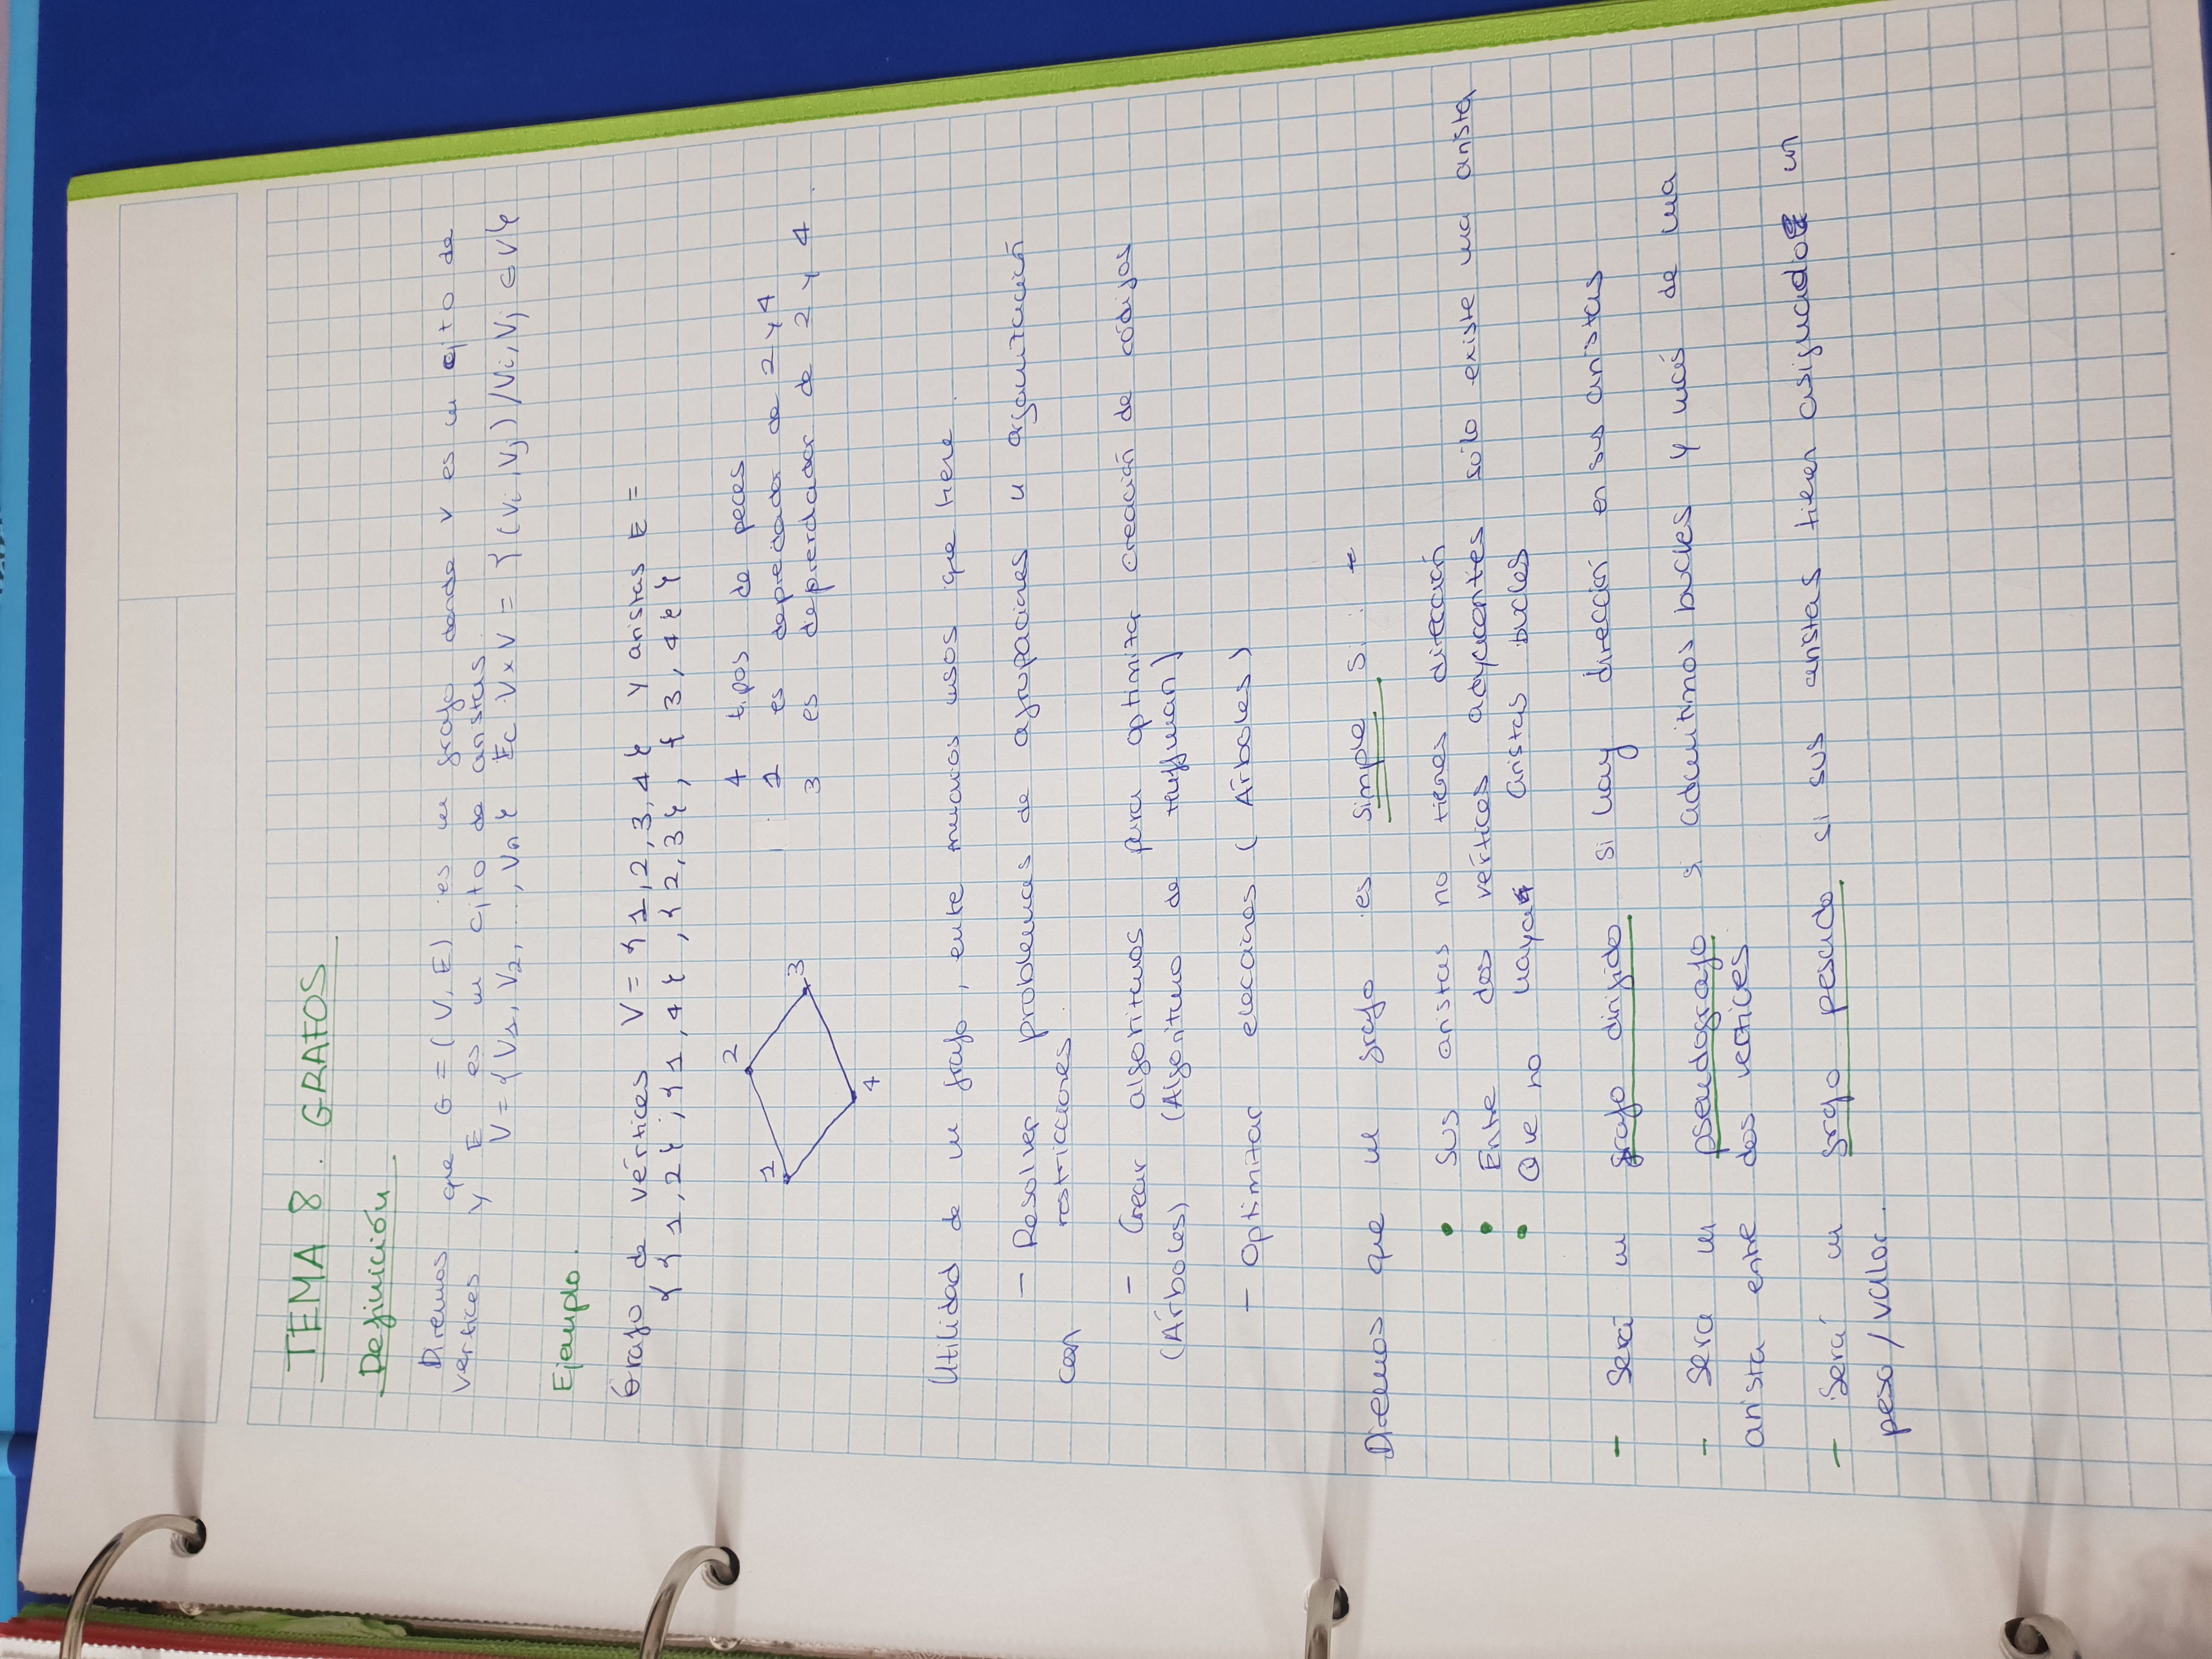 TEMA 8. GRAFOS
Definición
Diremos que G = (V, E) es un grafo donde V es un cjto de
vertices y E es un cjto de aristas.
V = {V1, V2, ..., Vn} E ⊂ V x V = {(Vi, Vj) / Vi, Vj ∈ V}
Ejemplo.
Grafo de vértices V = {1, 2, 3, 4} y aristas E =
{{1, 2}, {1, 4}, {2, 3}, {3, 4}}
1 2 3 4
4 tipos de peces
1 es depredador de 2 y 4
3 es depredador de 2 y 4.
Utilidad de un grafo, entre muchos usos que tiene.
- Resolver problemas de agrupaciones u organización
con restricciones.
- Crear algoritmos para optimizar creación de códigos
(Árboles) (Algoritmo de Huffman)
- Optimizar elecciones (Árboles)
Diremos que un grafo es simple si:
• Sus aristas no tienes dirección
• Entre dos vértices adyacentes sólo existe una arista
• Que no haya aristas bucles
- Será un grafo dirigido si hay dirección en sus aristas
- Sera un pseudografo si admitimos bucles y más de una
arista entre dos vertices
- Será un grafo pesado si sus aristas tienen asignado un
peso / valor.